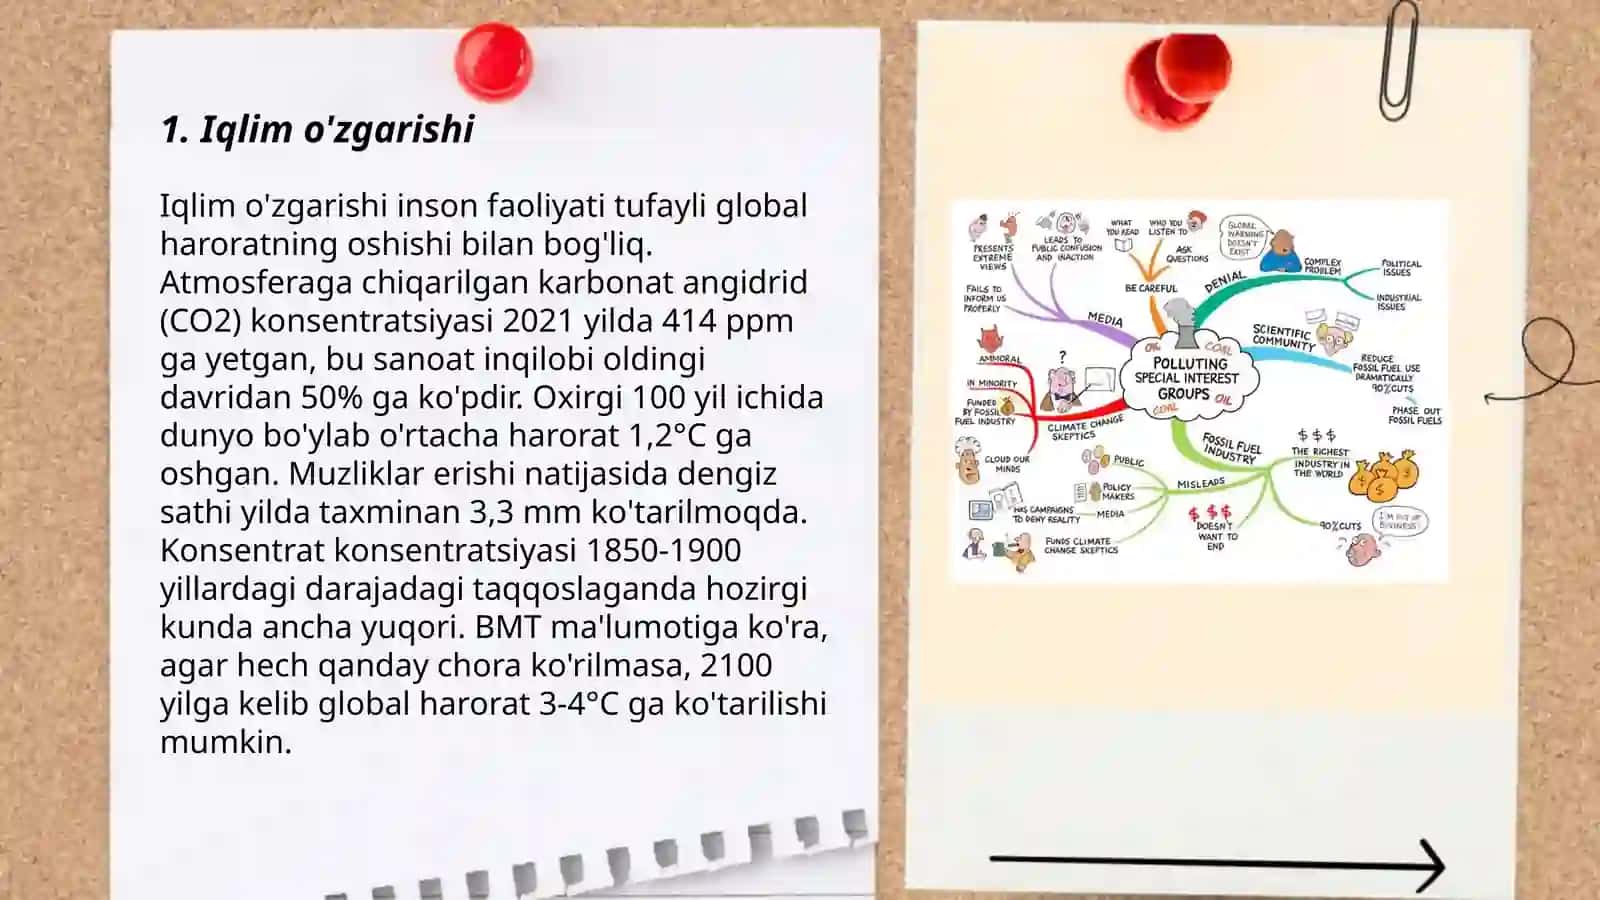 1. Iqlim o'zgarishi
Iqlim o'zgarishi inson faoliyati tufayli global
haroratning oshishi bilan bog'liq.
Atmosferaga chiqarilgan karbonat angidrid
(CO2) konsentratsiyasi 2021 yilda 414 ppm
ga yetgan, bu sanoat inqilobi oldingi
davridan 50% ga ko'pdir. Oxirgi 100 yil ichida
dunyo bo'ylab o'rtacha harorat 1,2°C ga
oshgan. Muzliklar erishi natijasida dengiz
sathi yilda taxminan 3,3 mm ko'tarilmoqda.
Konsentrat konsentratsiyasi 1850-1900
yillardagi darajadagi taqqoslaganda hozirgi
kunda ancha yuqori. BMT ma'lumotiga ko'ra,
agar hech qanday chora ko'rilmasa, 2100
yilga kelib global harorat 3-4°C ga ko'tarilishi
mumkin.
PRESENTS
EXTREME
VIEWS
LEADS TO
PUBLIC CONFUSION
AND INACTION
FAILS TO
INFORM US
PROPERLY
MEDIA
WHAT
YOU READ
WHO YOU
LISTEN TO
ASK
QUESTIONS
BE CAREFUL
GLOBAL
WARMING
DOESN'T
EXIST
DENIAL
COMPLEX
PROBLEM
POLITICAL
ISSUES
INDUSTRIAL
ISSUES
SCIENTIFIC
COMMUNITY
REDUCE
FOSSIL FUEL USE
DRAMATICALLY
90% CUTS
PHASE OUT
FOSSIL FUELS
OIL
COAL
POLLUTING
SPECIAL INTEREST
GROUPS
OIL
COAL
?
AMMORAL
IN MINORITY
FUNDED
BY FOSSIL
FUEL INDUSTRY
CLOUD OUR
MINDS
CLIMATE CHANGE
SKEPTICS
FOSSIL FUEL
INDUSTRY
$ $ $
THE RICHEST
INDUSTRY IN
THE WORLD
$ $ $
MISLEADS
PUBLIC
POLICY
MAKERS
MEDIA
HAS CAMPAIGNS
TO DENY REALITY
FUNDS CLIMATE
CHANGE SKEPTICS
$ $ $
DOESN'T
WANT TO
END
90% CUTS
I'M OUT OF
BUSINESS!